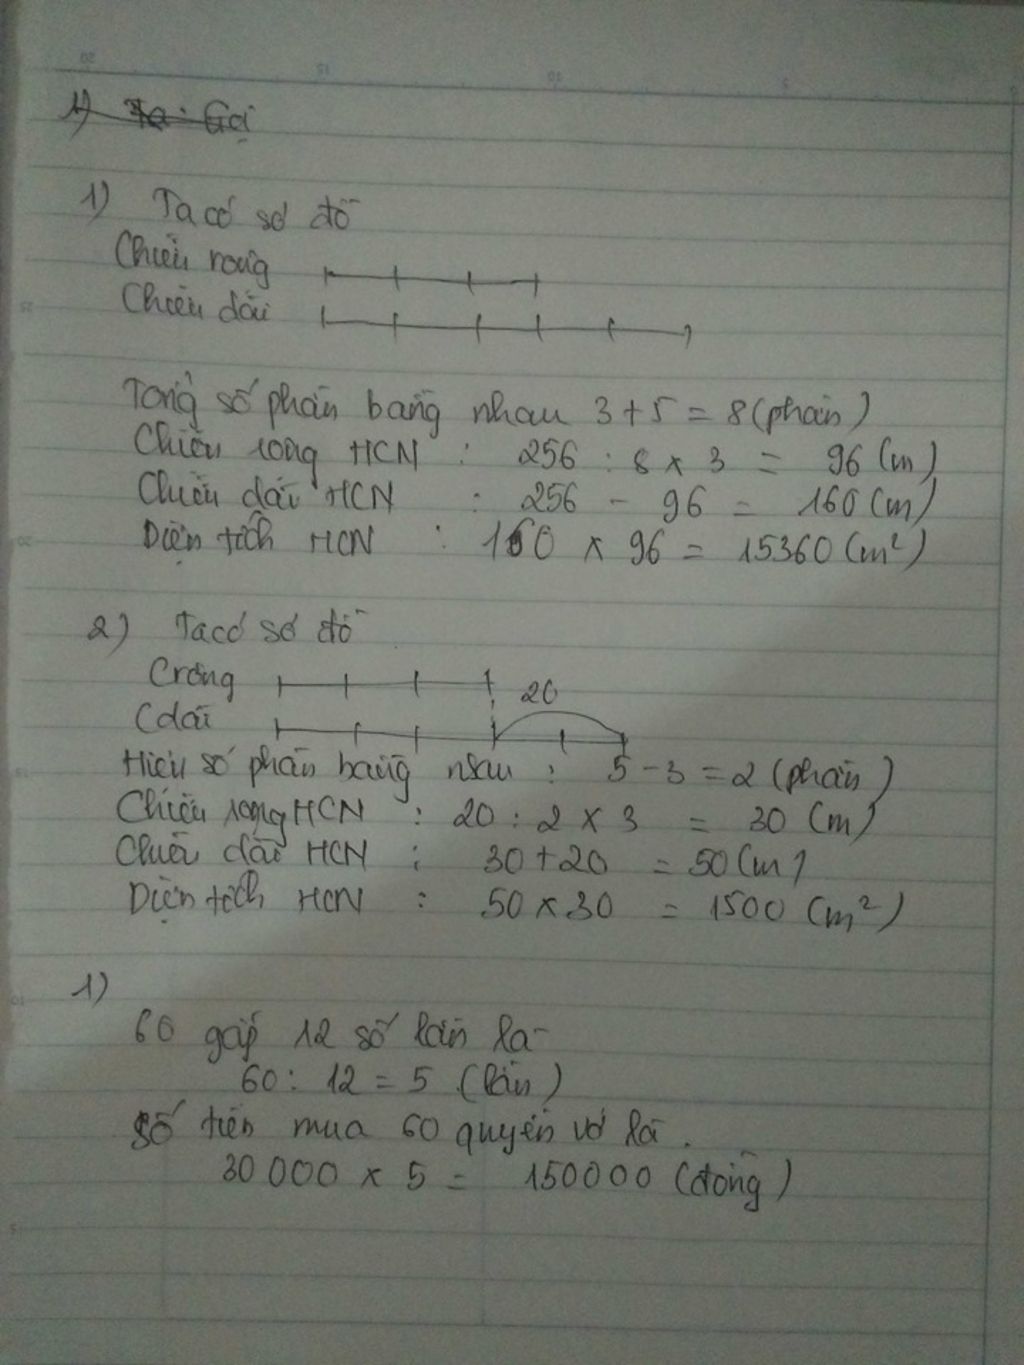 1) Ta: Gọi
1) Ta có sơ đồ
Chiều rộng
Chiều dài
Tổng số phần bằng nhau 3 + 5 = 8 (phần)
Chiều rộng HCN : 256 : 8 x 3 = 96 (m)
Chiều dài HCN : 256 - 96 = 160 (m)
Diện tích HCN : 160 x 96 = 15360 (m²)
2) Ta có sơ đồ
Crộng
20
Cdài
Hiệu số phần bằng nhau : 5 - 3 = 2 (phần)
Chiều rộng HCN : 20 : 2 x 3 = 30 (m)
Chiều dài HCN : 30 + 20 = 50 (m)
Diện tích HCN : 50 x 30 = 1500 (m²)
1)
60 gấp 12 số lần là
60 : 12 = 5 (lần)
Số tiền mua 60 quyển vở là .
30 000 x 5 = 150000 (đồng)